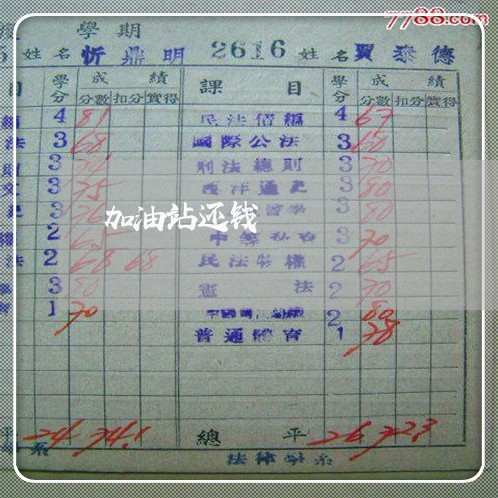 7788.com
學期
5 姓名 忻鼎明 2616 姓名 賈泰德
目 學分 成績 課目 學分 成績
分數 扣分 實得 分數 扣分 實得
4 81 民法債編 4 67
法 3 68 國際公法 3 60
3 刑法總則 3 70
3 75 西洋通史 3 80
3 3 80
2 65 3 70
法 2 68 68 民法物權 2 65
3 80 憲法 2 70
1 70 2 80
普通體育 1 78
加油站还钱
平 24 74.1 總平 26 72.3
系 法律學系